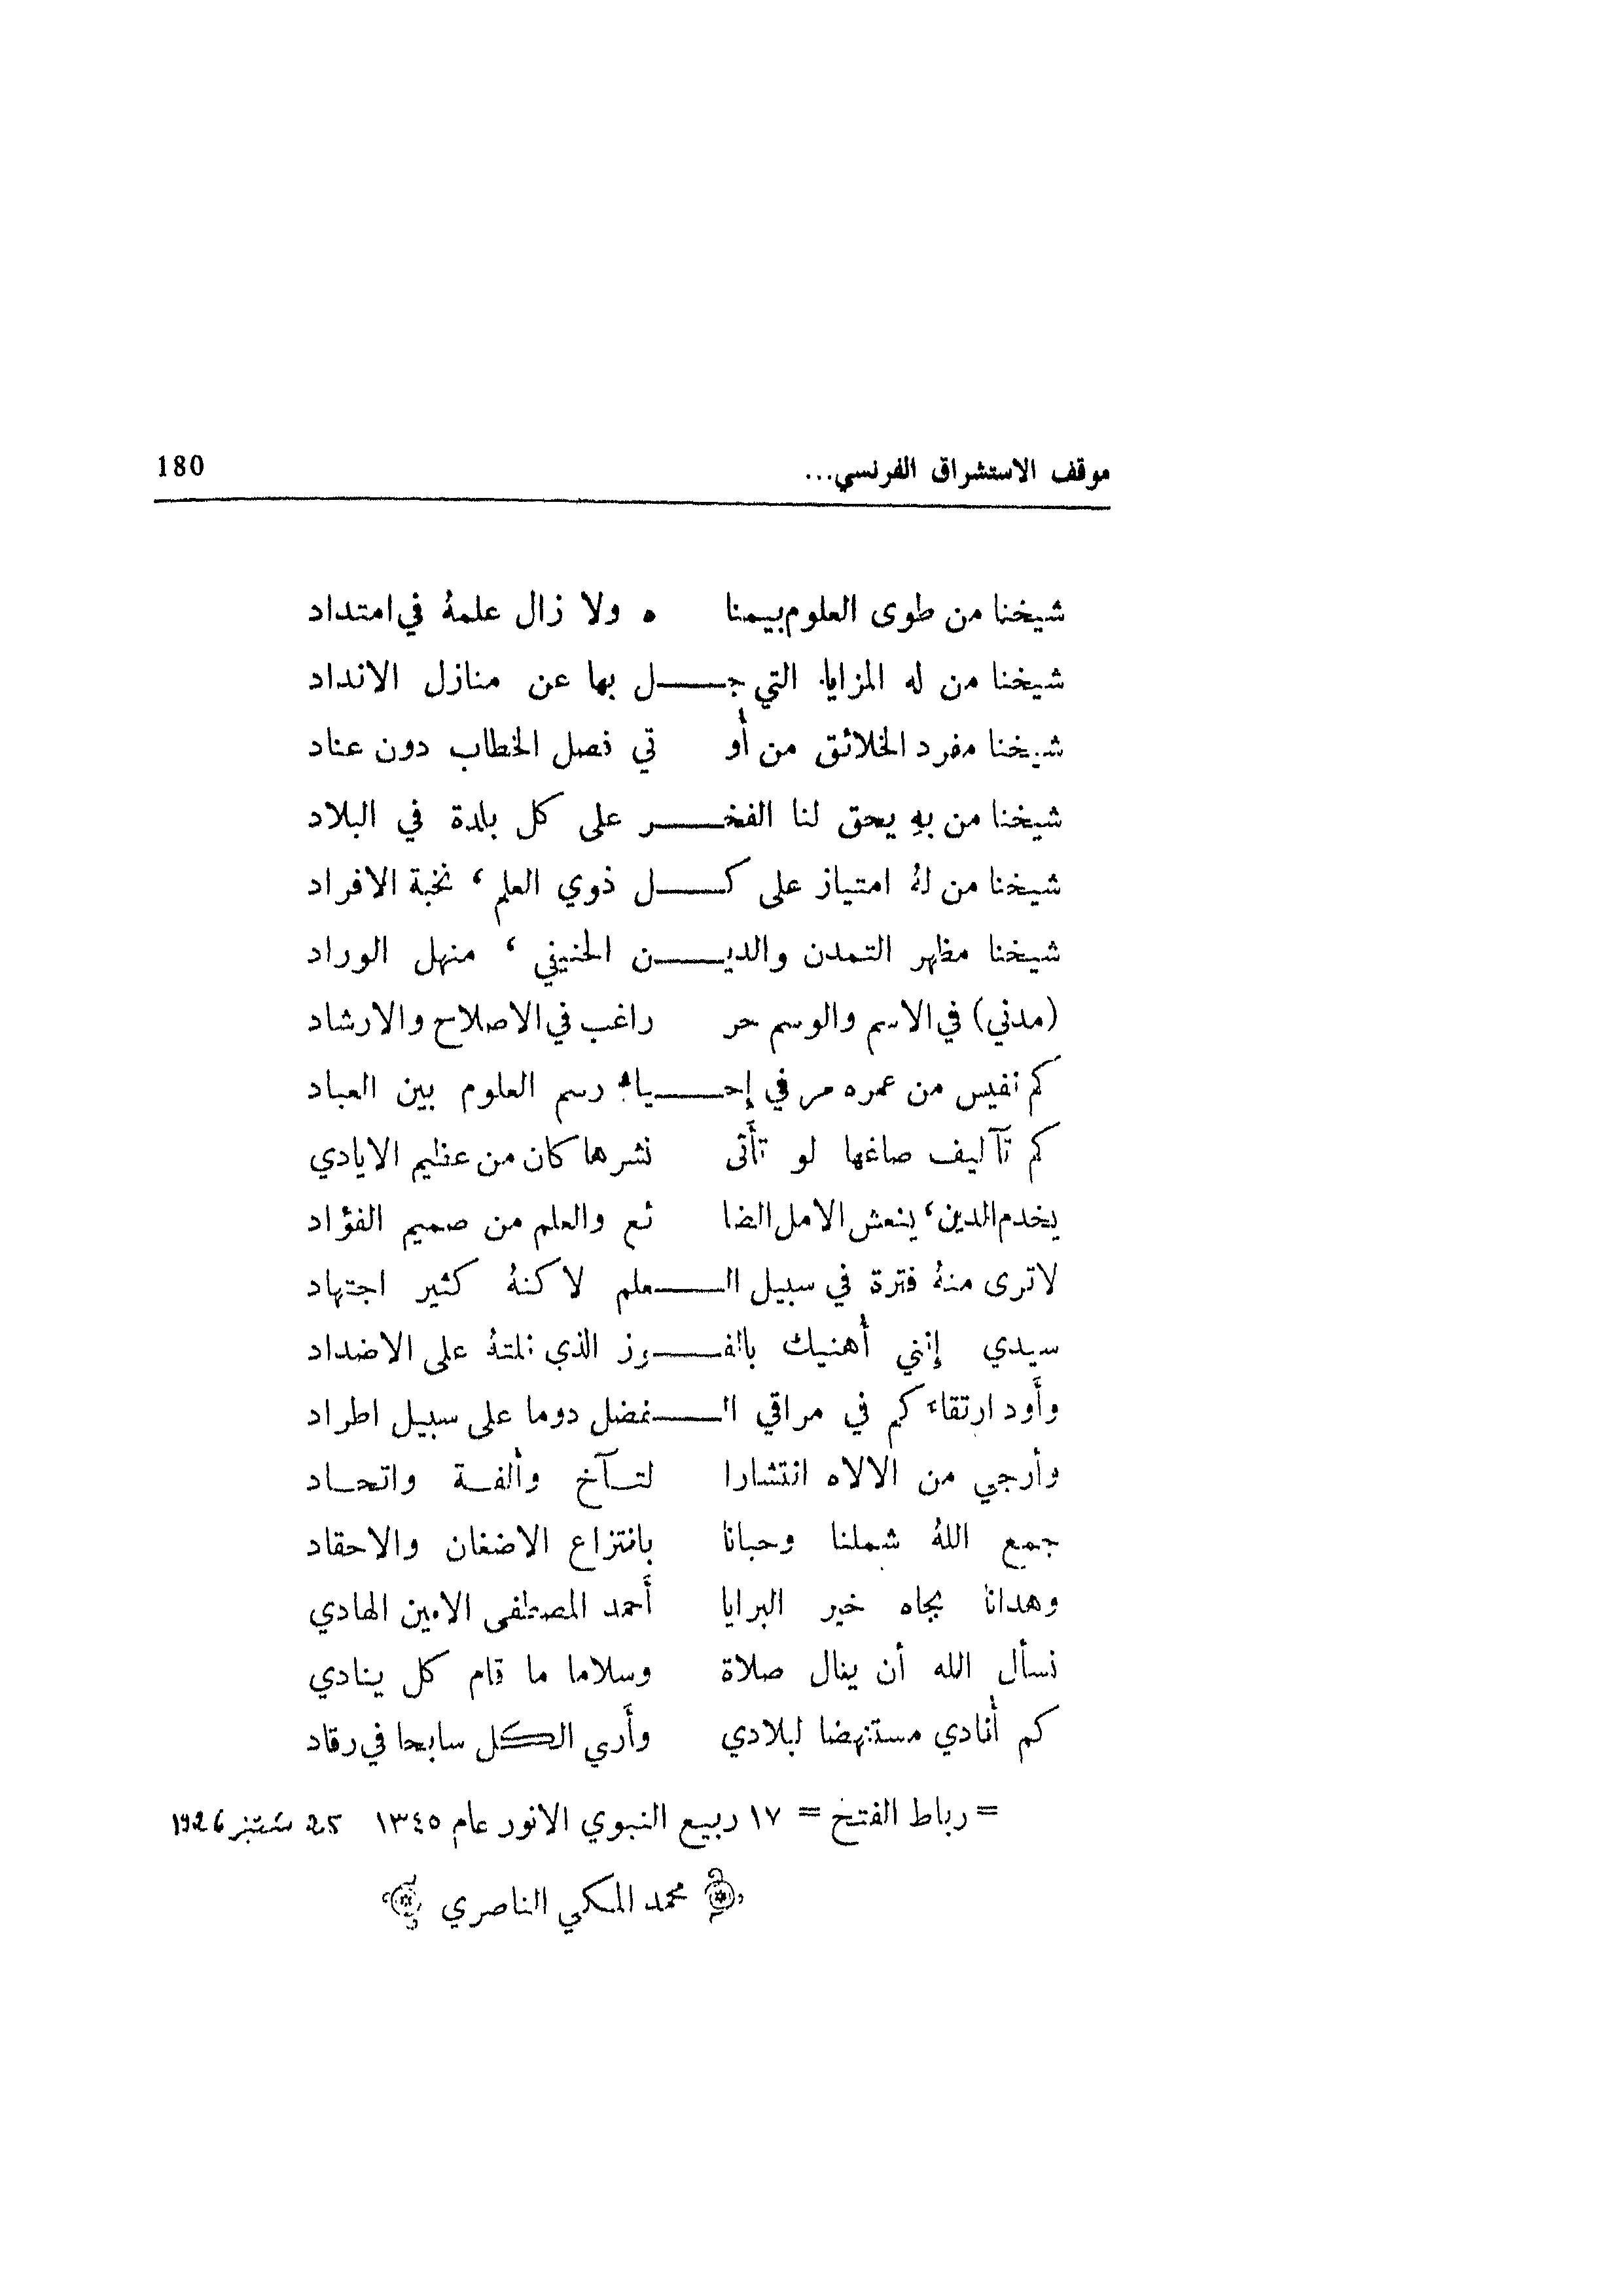 موقف الاستشراق الفرنسي... 180
شيخنا من طوى العلوم بيمنا ه ولا زال علمهُ في امتداد
شيخنا من له المزايا التي جـــل بها عن منازل الانداد
شيخنا مفرد الخلائق من أو تي فصل الخطاب دون عناد
شيخنا من بهِ يحق لنا الفخـــر على كل بلدة في البلاد
شيخنا من لهُ امتياز على كـــل ذوي العلم ، نخبة الافراد
شيخنا مظهر التمدن والديـــن الحنيفي ، منهل الوراد
(مدني) في الاسم والوسم حر راغب في الاصلاح والارشاد
كم نفيس من عمره مر في إحـــياء رسم العلوم بين العباد
كم تآليف صاغها لو تأَتى نشرها كان من عظيم الايادي
يخدم الدين، ينعش الامل الضا ئع والعلم من صميم الفؤاد
لا ترى منهُ فترة في سبيل الـــعلم لاكنهُ كثير اجتهاد
سيدي إنني أهنيك بالفـــوز الذي نلتهُ على الاضداد
وأَود ارتقاءكم في مراقي الـــفضل دوما على سبيل اطراد
وأرجي من الالاه انتشارا لتــآخ وألفــة واتحــاد
جمع اللهُ شملنا وحبانا بانتزاع الاضغان والاحقاد
وهدانا بجاه خير البرايا أَحمد المصطفى الامين الهادي
نسأل الله أن ينال صلاة وسلاما ما قام كل ينادي
كم أنادي مستنهضا لبلادي وأَرى الكل سابحا في رقاد
= رباط الفتح = ١٧ ربيع النبوي الانور عام ١٣٤٥ 25 شتنبر 1926
محمد المكي الناصري